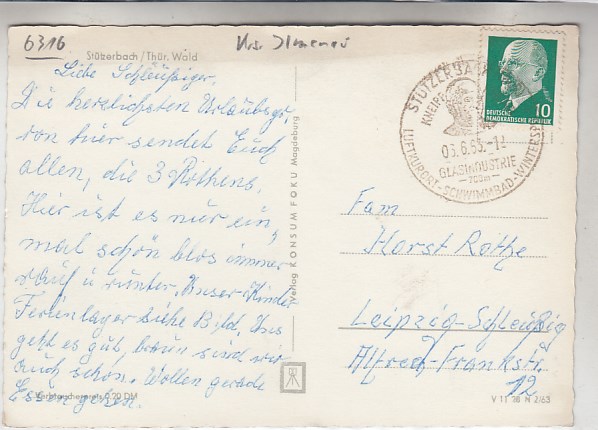 6316
Krs. Ilmenau
Stützerbach/Thür. Wald
Liebe Schleußiger,
Die herzlichsten Urlaubsgr.
von hier sendet Euch
allen, die 3 Rothens.
Hier ist es nur ein,
mal schön blos immer
rauf u runter. Unser Kinder
Ferienlager siehe Bild. Uns
geht es gut, braun sind wir
auch schon. Wollen gerade
Essen gehen.
Verbraucherpreis 0,20 DM
Verlag KONSUM FOKU Magdeburg
STÜTZERBACH
KNEIPP
03.6.65.-1
GLASINDUSTRIE
LUFTKURORT-SCHWIMMBAD-WINTERSP
DEUTSCHE
DEMOKRATISCHE REPUBLIK
10
Fam
Horst Rothe
Leipzig-Schleußig
Alfred-Frankstr.
12
V 11 28 N 2/63